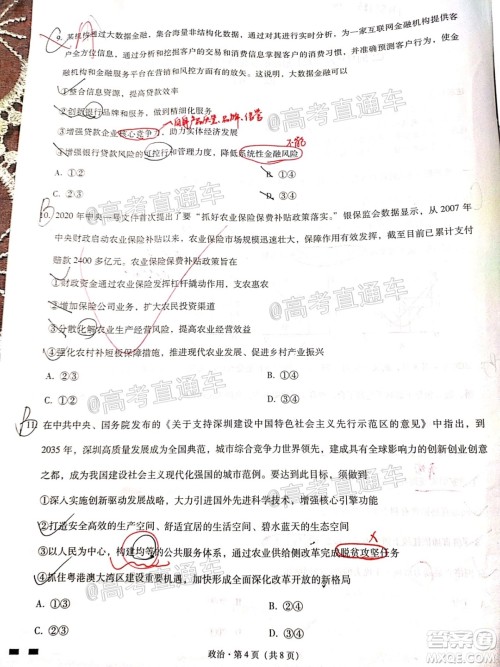 9. 某机构通过大数据金融,集合海量非结构化数据,通过对其进行实时分析,为一家互联网金融机构提供客
户全方位信息,通过分析和挖掘客户的交易和消费信息掌握客户的消费习惯,并准确预测客户行为,使
金融机构和金融服务平台在营销和风控方面有的放矢。可以说,大数据金融可以
①整合信息资源,提高资源效率
②创新银行品牌和服务,做到精细化服务
③增强贷款企业核心竞争力,助力实体经济发展
不能
④增强银行贷款风险的可控行和管理力度,降低系统性金融风险
A. ①②
B. ①④
C. ②③
D. ③④
B
10. 2020 年中央一号文件首次提出了要“抓好农业保险保费补贴政策落实。”银保监会数据显示,从 2007 年
中央财政启动农业保险补贴以来,我国农业保险实现了跨越式增长,保障作用有效发挥,截至目前已累计支出
赔款 2400 多亿元。农业保险保费补贴政策旨在
①财政资金通过农业保险发挥杠杆撬动作用,支农惠农
②增加保险公司业务,扩大农民投资渠道
③分散化解农业生产经营风险,提高农业经营效益
④强化农村补短板保障措施,推进现代农业发展、促进乡村产业振兴
A. ②③
B. ①③
C. ②④
D. ①④
B
11. 在中共中央、国务院发布的《关于支持深圳建设中国特色社会主义先行示范区的意见》中指出,到
2035 年,深圳高质量发展成为全国典范,城市综合竞争力世界领先,建成具有全球影响力的创新创业创意
之都,成为我国建设社会主义现代化强国的城市范例。要达到这一目标,深圳应该
①深入实施创新驱动发展战略,大力引进国外先进科学技术,增强核心引擎功能
②打造安全高效的生产空间、舒适宜居的生活空间、碧水蓝天的生态空间
③以人民为中心,构建均等的公共服务体系,通过农业供给侧改革完成脱贫攻坚任务
④抓住粤港澳大湾区建设重要机遇,加快形成全面深化改革开放的新格局
A. ①③
B. ②④
C. ②③
D. ①④
政治·第 4 页(共 8 页)
@高考直通车
@高考直通车
@高考直通车
答案圈